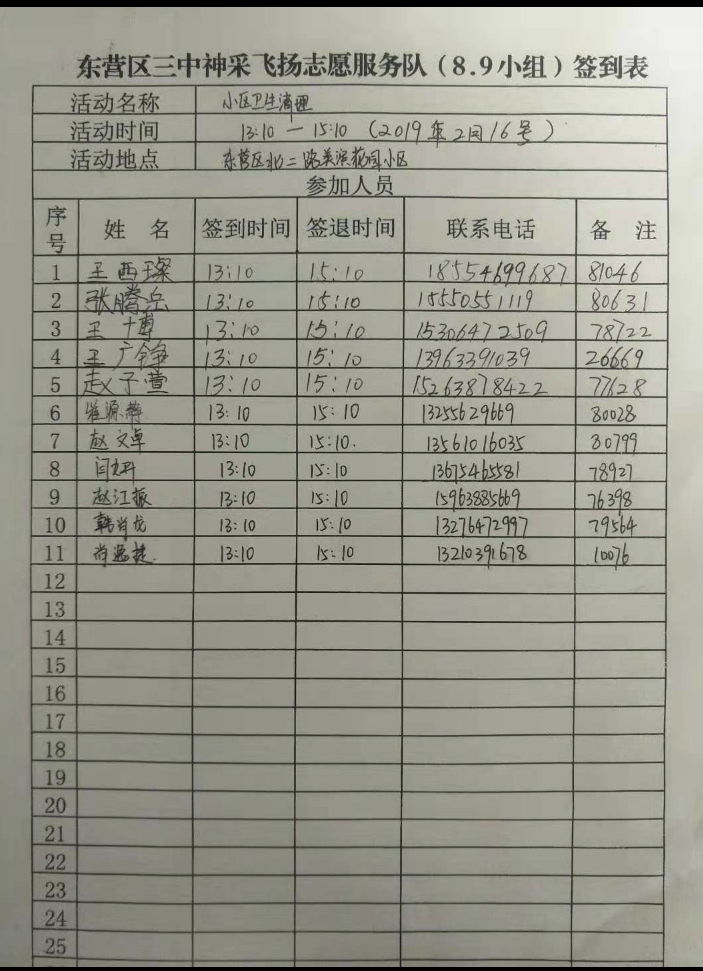 东营区三中神采飞扬志愿服务队（8.9小组）签到表
活动名称 小区卫生清理
活动时间 13:10 — 15:10 （2019年2月16号）
活动地点 东营区北二路美滨花园小区
参加人员
序号 姓 名 签到时间 签退时间 联系电话 备 注
1 王西璨 13:10 15:10 18554699687 81046
2 张腾岳 13:10 15:10 15550551119 80631
3 王博 13:10 15:10 15306472509 78722
4 王广铮 13:10 15:10 13963391039 26669
5 赵子萱 13:10 15:10 15263878422 77628
6 崔源 13:10 15:10 13255629669 80028
7 赵文卓 13:10 15:10. 13561016035 80799
8 闫妍 13:10 15:10 13675465581 78927
9 赵江振 13:10 15:10 15963885669 76398
10 韩肖龙 13:10 15:10 13276472997 79564
11 尚逸捷 13:10 15:10 13210391678 10076
12
13
14
15
16
17
18
19
20
21
22
23
24
25